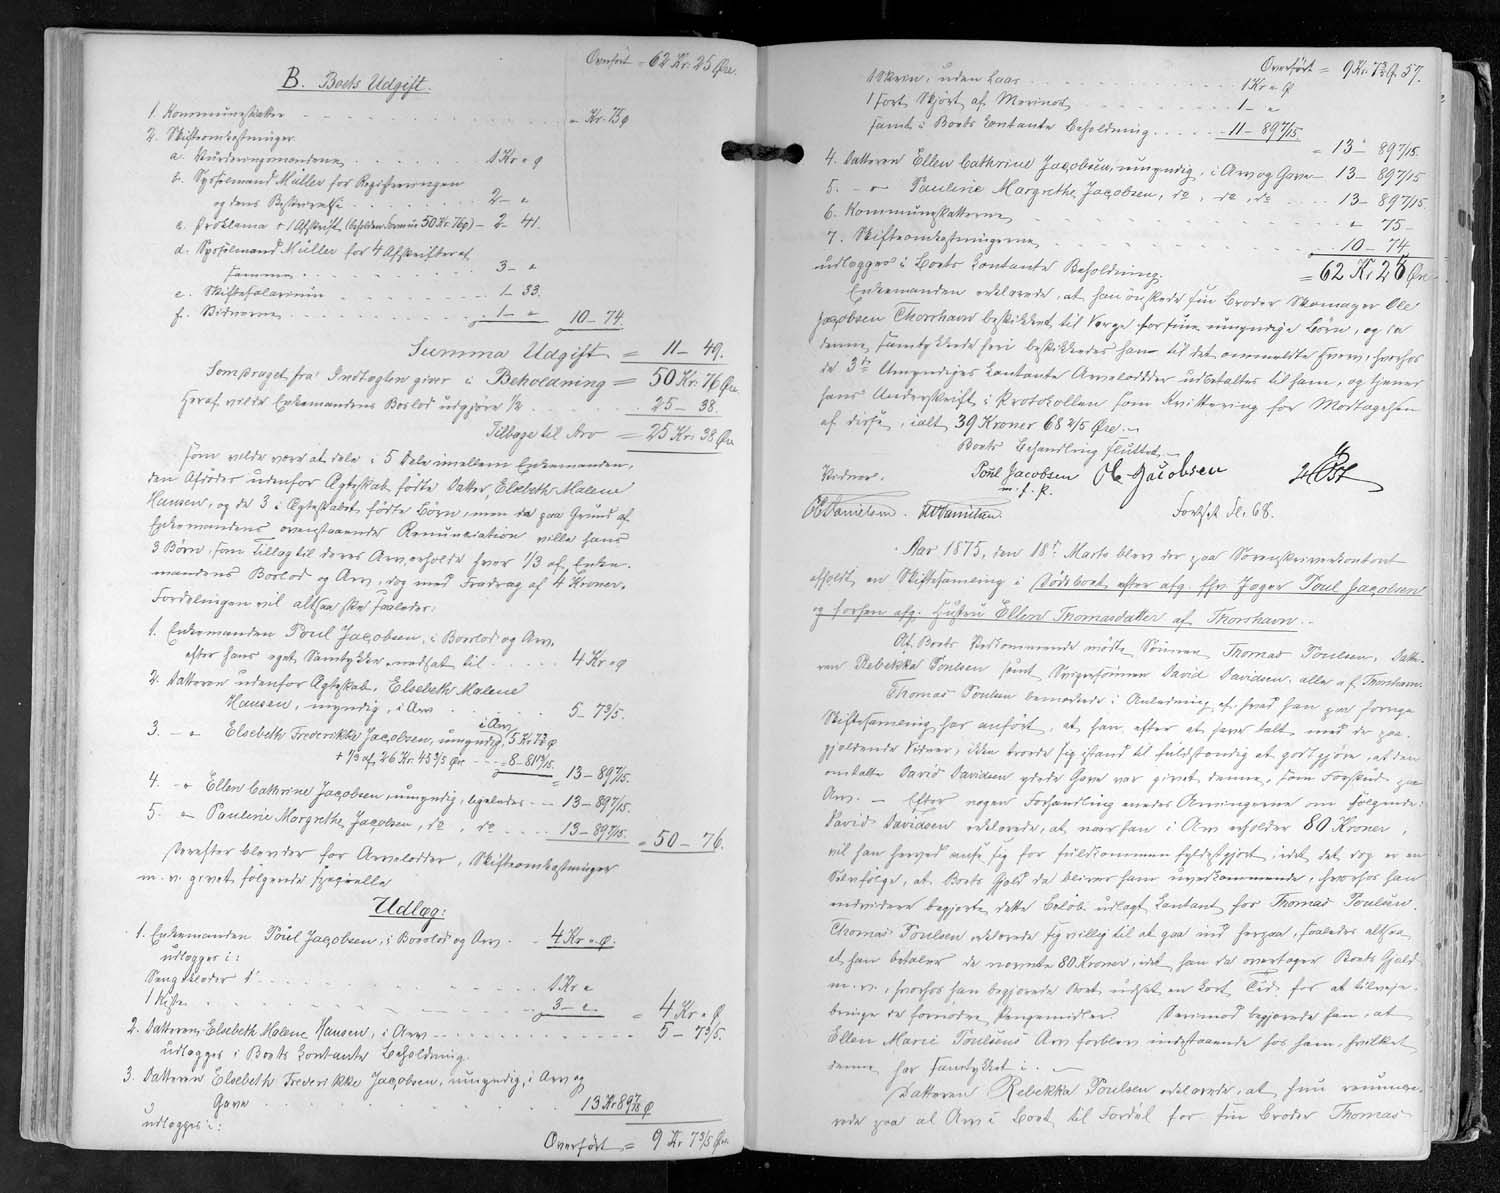 Overført = 62 Kr. 25 Øre.
B. Boets Udgift.
1. Kommuneskatter " Kr. 75 ø
2. Skifteomkostninger
a. Vurderingsmændene 1 Kr " ø
b. Sysselmand Müller for Registreringen
og dens Beskrivelse 2 - "
c. Proklama + 1 Afskrift (beholden Formue 50 Kr. 76 ø) - 2 - 41.
d. Sysselmand Müller for 4 Afskrifter af
samme 3 - "
e. Skiftesalarium 1 - 33.
f. Vidnerne 1 - " 10 - 74.
Summa Udgift = 11 - 49.
Som draget fra Indtægten giver i Beholdning = 50 Kr. 76 Øre.
Heraf vilde Enkemandens Boslod udgjøre 1/2 25 - 38.
Tilbage til Arv = 25 Kr. 38 Øre
som vilde være at dele i 5 Dele imellem Enkemanden,
den Afdødes udenfor Ægteskab fødte Datter, Elsebeth Malene
Hansen, og de 3 i Ægteskabet fødte Børn, men da paa Grund af
Enkemandens ovenstaaende Renunciation ville hans
3 Børn, som Tillæg til deres Arv erholde hver 1/3 af Enke-
mandens Boslod og Arv, dog med Fradrag af 4 Kroner.
Fordelingen vil altsaa ske saaledes:
1. Enkemanden Poul Jacobsen, i Boslod og Arv,
efter hans eget Samtykke nedsat til 4 Kr " ø
2. Datteren udenfor Ægteskab, Elsebeth Malene
Hansen, myndig, i Arv 5 - 7 3/5.
3. - " Elsebeth Frederikke Jacobsen, umyndig, i Arv 5 Kr 7 3/5 ø
+ 1/3 af 26 Kr. 45 3/5 Øre = 8 - 81 13/15. = 13 - 89 7/15.
4. - " Ellen Cathrine Jacobsen, umyndig, ligeledes - 13 - 89 7/15.
5. - " Pauline Margrethe Jacobsen, do, do 13 - 89 7/15. = 50 - 76.
Derefter blev der for Arvelodder, Skifteomkostninger
m. v. givet følgende specielle
Udlæg:
1. Enkemanden Poul Jacobsen, i Boslod og Arv 4 Kr " ø.
udlægges i:
Sengeklæder 1 Kr "
1 Kiste 3 - " = 4 Kr " ø
2. Datteren Elsebeth Malene Hansen, i Arv 5 - 7 3/5.
udlægges i Boets kontante Beholdning.
3. Datteren Elsebeth Frederikke Jacobsen, umyndig, i Arv og
Gave 13 Kr 89 7/15 ø
udlægges i:
Overført = 9 Kr 7 3/5 Øre.
Overført = 9 Kr. 7 3/5 Ø. 57.
1 Skrin, uden Laas 1 Kr " ø
1 sort Skjørt af Merinos 1 - "
samt i Boets kontante Beholdning 11 - 89 7/15. = 13 - 89 7/15.
4. Datteren Ellen Cathrine Jacobsen, umyndig, i Arv og Gave - 13 - 89 7/15
5. - " Pauline Margrethe Jacobsen, do, do, do 13 - 89 7/15.
6. Kommuneskatterne " 75 -
7. Skifteomkostningerne 10 - 74
udlægges i Boets kontante Beholdning. = 62 Kr 25 Øre
Enkemanden erklærede, at han ønskede sin Broder Skomager Ole
Jacobsen Thorshavn beskikket til Værge for sine umyndige Børn, og da
denne samtykkede heri beskikkedes han til det anmeldte Hverv, hvorhos
de 3de Umyndiges kontante Arvelodder udbetaltes til ham, og tjener
hans Underskrift i Protokollen som Kvittering for Modtagelsen
af disse, ialt 39 Kroner 68 2/5 Øre.
Boets Behandling sluttet.
Vidner. Poul Jacobsen Ol. Jacobsen HPost
m. f. P.
Ol Danielsen. Danielsen Fortsat Fl. 68.
Aar 1875, den 18de Marts blev der paa Sorenskriverkontoret
afholdt en Skiftesamling i Dødsboet efter afg. fhv. Jæger Poul Jacobsen
og forhen afg. Hustru Ellen Thomasdatter af Thorshavn.
Af Boets Vedkommende mødte Sønnen Thomas Poulsen, Datte-
ren Rebekka Poulsen samt Svigersønnen David Davidsen, alle af Thorshavn.
Thomas Poulsen bemærkede i Anledning af, hvad han paa forrige
Skiftesamling har anført, at han efter at have talt med de paa-
gjældende Vidner, ikke troede sig istand til fuldstændig at godtgjøre, at den
omtalte David Davidsen ydede Gave var givet denne, som Forskud paa
Arv. - Efter nogen Forhandling enedes Arvingerne om følgende:
David Davidsen erklærede, at naar han i Arv erholder 80 Kroner,
vil han herved anse sig for fuldkommen fyldestgjort, idet det dog er en
Selvfølge, at Boets Gjæld da bliver ham uvedkommende, hvorhos han
endvidere begjærte dette Beløb udlagt kontant hos Thomas Poulsen.
Thomas Poulsen erklærede sig villig til at gaa ind herpaa, saaledes altsaa
at han betaler de nævnte 80 Kroner, idet han da overtager Boets Gjæld
m. v., hvorhos han begjærede Boet udsat en kort Tid for at tilveje-
bringe de fornødne Pengemidler. Derimod begjærede han, at
Ellen Marie Poulsens Arv forblev indestaaende hos ham, hvilket
denne har samtykket i. -
Datteren Rebekka Poulsen erklærede, at hun renunce-
rede paa al Arv i Boet til Fordel for sin Broder Thomas